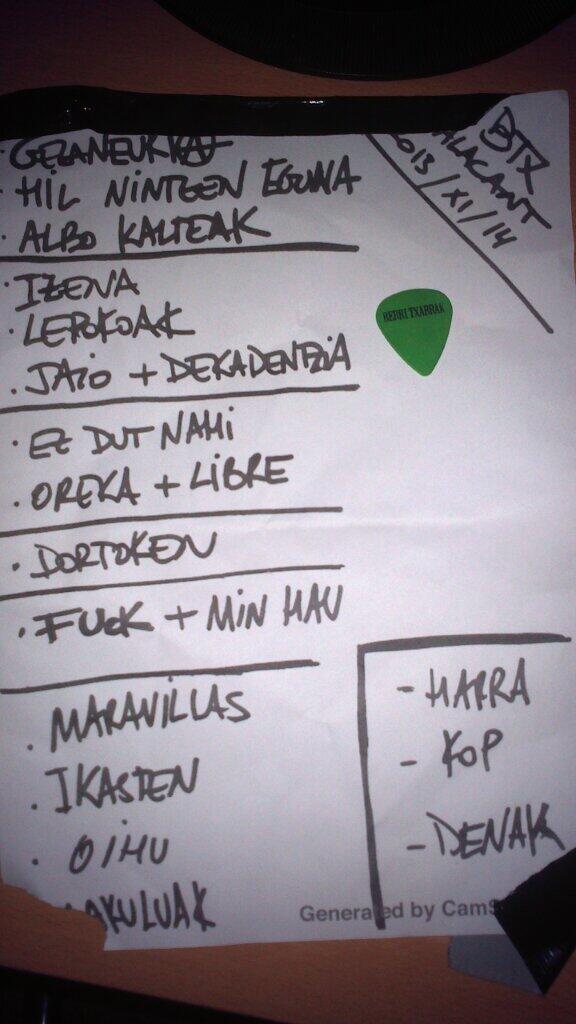 BTX
ALACANT
2013/XI/14
· GEZANEUKKAT
· HIL NINTZEN EGUNA
· ALBO KALTEAK
· IZENA
· LEPOKOAK
· JAIO + DEKADENTZIA
· EZ DUT NAHI
· OREKA + LIBRE
· DORTOKEN
· FUCK + MIN HAU
· MARAVILLAS
· IKASTEN
· OIHU
AKULUAK
- HARRA
- KOP
- DENAK
BERRI TXARRAK
Generated by CamS